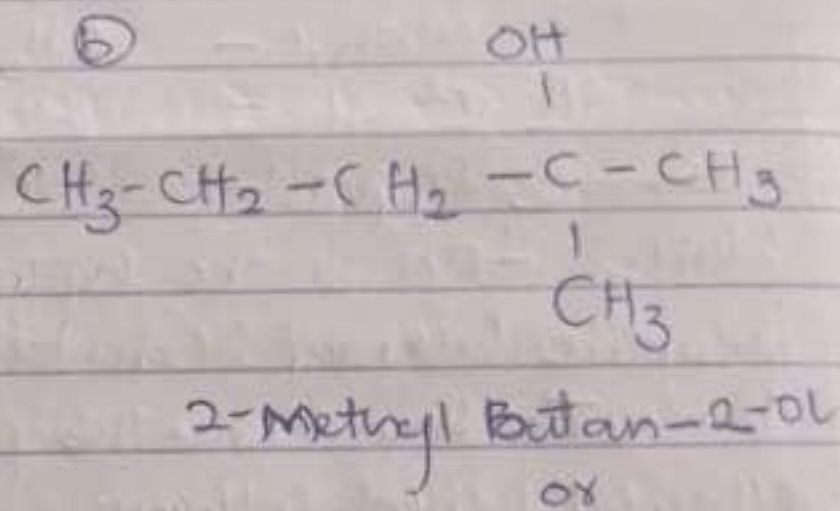 b
OH
|
CH3-CH2-CH2-C-CH3
|
CH3
2-Methyl Butan-2-ol
or